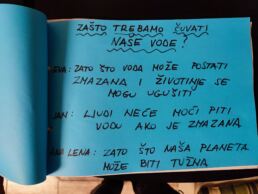 ZAŠTO TREBAMO ČUVATI
NAŠE VODE!
EVA: ZATO ŠTO VODA MOŽE POSTATI
ZMAZANA I ŽIVOTINJE SE
MOGU UGUŠITI
JAN: LJUDI NEĆE MOĆI PITI
VODU AKO JE ZMAZANA
ANA LENA: ZATO ŠTO NAŠA PLANETA
MOŽE BITI TUŽNA